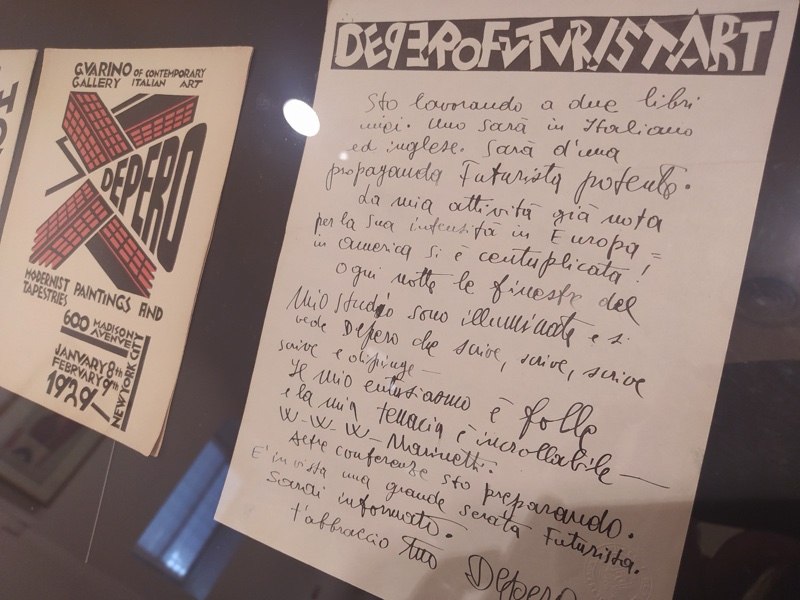 GVARINO OF CONTEMPORARY
GALLERY ITALIAN ART
DEPERO
MODERNIST PAINTINGS AND
TAPESTRIES
600 MADISON
AVENUE
NEW YORK CITY
JANUARY 8th
FEBRVARY 9th
1929
DEPEROFUTURISTART
Sto lavorando a due libri
miei. Uno sarà in Italiano
ed inglese. Sarà d'una
propaganda Futurista potente.
La mia attività già nota
per la sua intensità in Europa =
in America si è centuplicata!
Ogni notte le finestre del
mio studio sono illuminate e si
vede Depero che scrive, scrive, scrive
scrive e dipinge —
Il mio entusiasmo è folle
e la mia tenacia è incrollabile —
W-W-W-Marinetti.
Altre conferenze sto preparando.
E' in vista una grande serata Futurista.
Sarai informato.
t'abbraccio tuo Depero